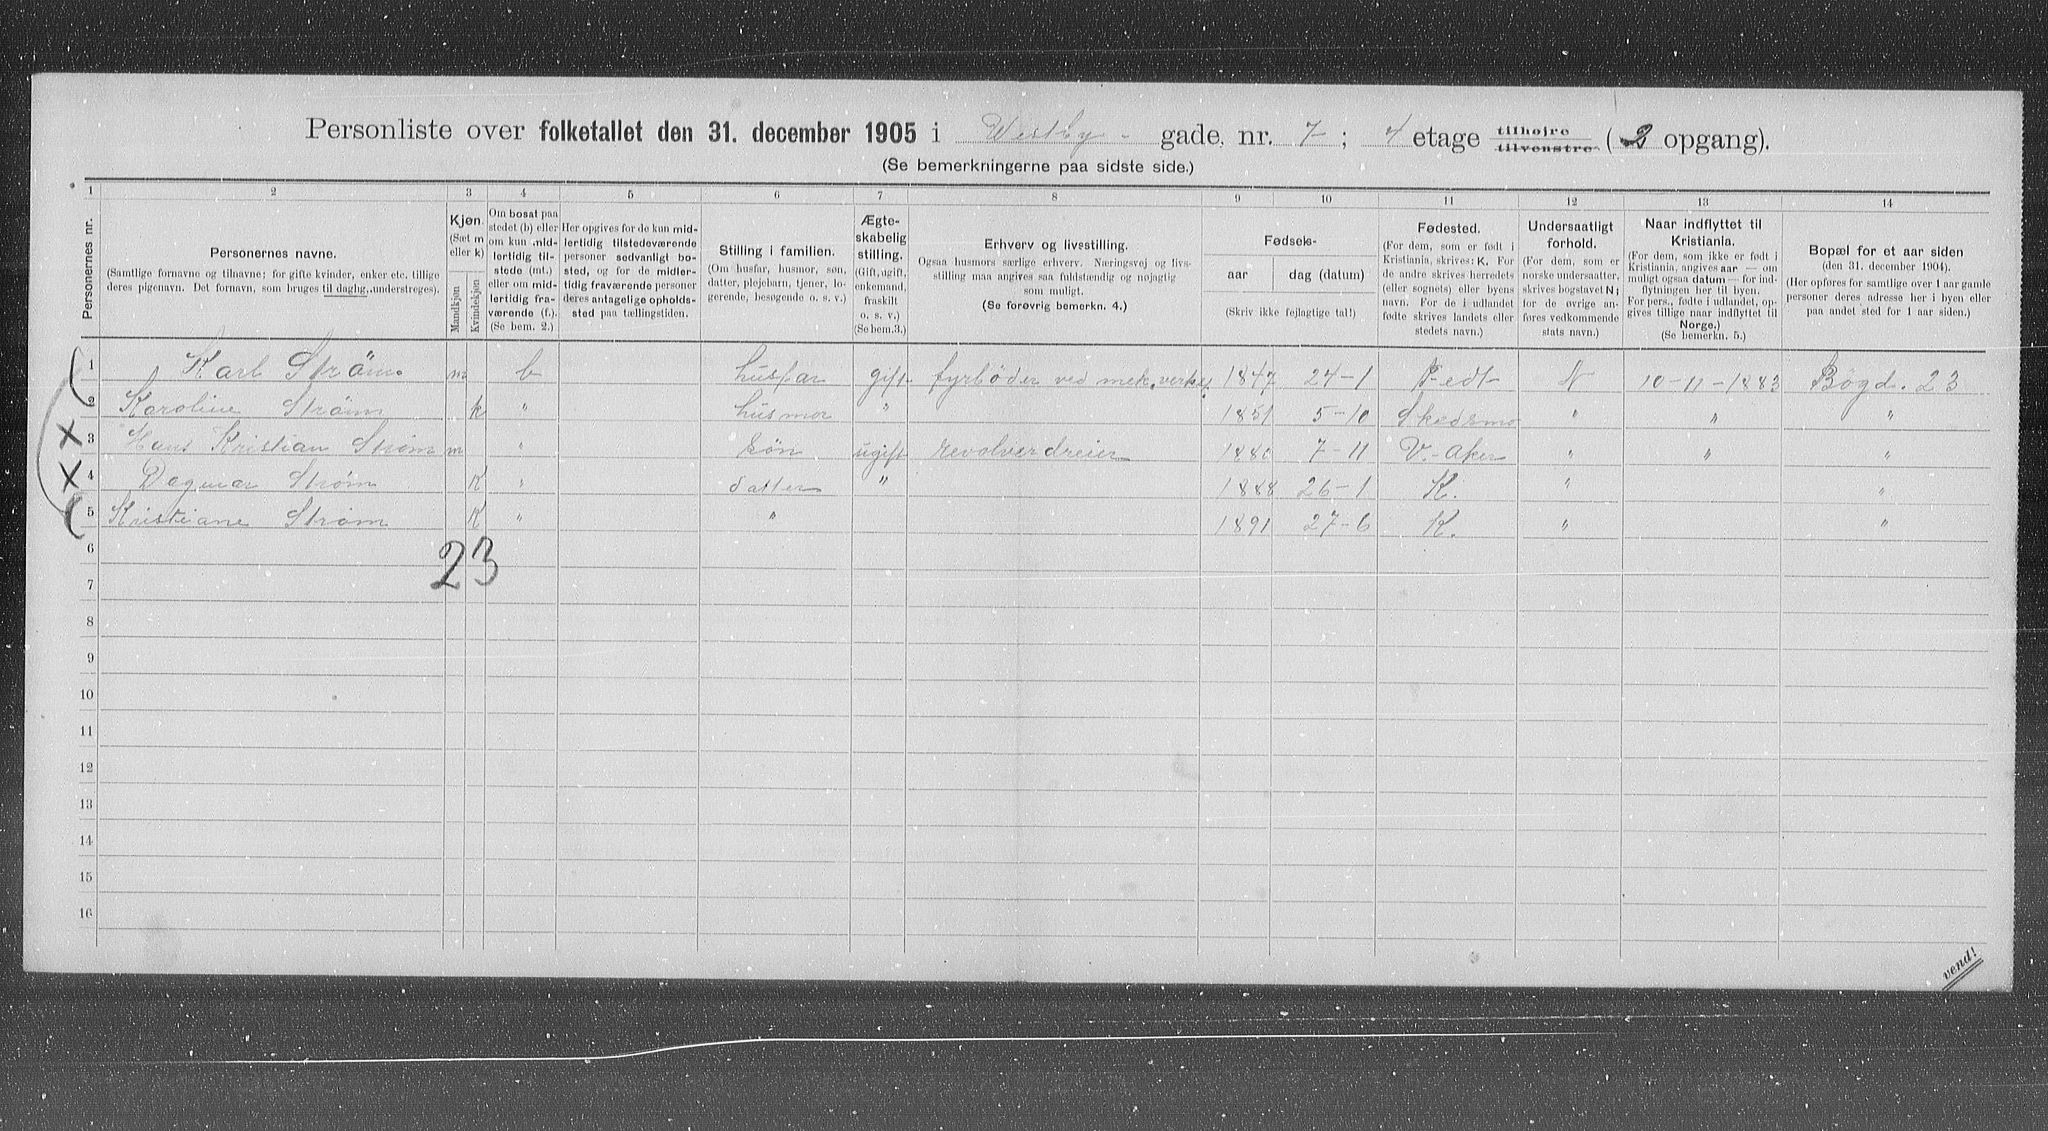 Personliste over folketallet den 31. december 1905 i Westby - gade nr. 7; 4 etage tilhøjre tilvenstre (2 opgang).
(Se bemerkningerne paa sidste side.)
1 2 3 4 5 6 7 8 9 10 11 12 13 14
Personernes nr.
Personernes navne.
(Samtlige fornavne og tilnavne; for gifte kvinder, enker etc. tillige
deres pigenavn. Det fornavn, som bruges til dagbg., understreges).
Kjøn.
(Sæt m
eller k)
Mandkjøn
Kvindekjøn
Om bosat paa
stedet (b) eller
om kun mid-
lertidig til-
stede (mt.)
eller om mid-
lertidig fra-
værende (f.).
(Se bem. 2.)
Her opgives for de kun mid-
lertidig tilstedeværende
personer sedvanligt bo-
sted, og for de midler-
tidig fraværende personer
deres antagelige opholds-
sted paa tællingstiden.
Stilling i familien.
(Om husfar, husmor, søn,
datter, plejebarn, tjener, lo-
gerende, besøgende o. s. v.)
Ægte-
skabelig
stilling.
(Gift, ugift,
enkemand,
fraskilt
o. s. v.)
(Se bem.3.)
Erhverv og livsstilling.
Ogsaa husmors særlige erhverv. Næringsvej og livs-
stilling maa angives saa fuldstændig og nøjagtig
som muligt.
(Se forøvrig bemerkn. 4.)
Fødsels-
aar dag (datum)
(Skriv ikke fejlagtige tal!)
Fødested.
(For dem, som er født i
Kristiania, skrives: K. For
de andre skrives herredets
(eller sognets) eller byens
navn. For de i udlandet
fødte skrives landets eller
stedets navn.)
Undersaatligt
forhold.
(For dem, som er
norske undersaatter,
skrives bogstavet N;
for de øvrige an-
føres vedkommende
stats navn.)
Naar indflyttet til
Kristiania.
(For dem, som ikke er født i
Kristiania, angives aar — om
muligt ogsaa datum — for ind-
flytningen her til byen.
For pers., fødte i udlandet, op-
gives tillige naar indflyttet til
Norge.)
(Se bemerkn. 5.)
Bopæl for et aar siden
(den 31. december 1904).
(Her opføres for samtlige over 1 aar gamle
personer deres adresse her i byen eller
paa andet sted for 1 aar siden.)
1 Karl Strøm. m b husfar gift fyrbøder ved mek. verksj 1847 24-1 N 10-11-1883 Bögd. 23
2 Karoline Strøm k " husmor " 1851 5-10 Skedsmo " " "
3 Hans Kristian Strøm m " søn ugift revolverdreier 1880 7-11 V. Aker " " "
4 Dagmar Strøm K " datter " 1888 26-1 K. " "
5 Kristiane Strøm K " " 1891 27-6 K. " "
6
23
7
8
9
10
11
12
13
14
15
16
vend!